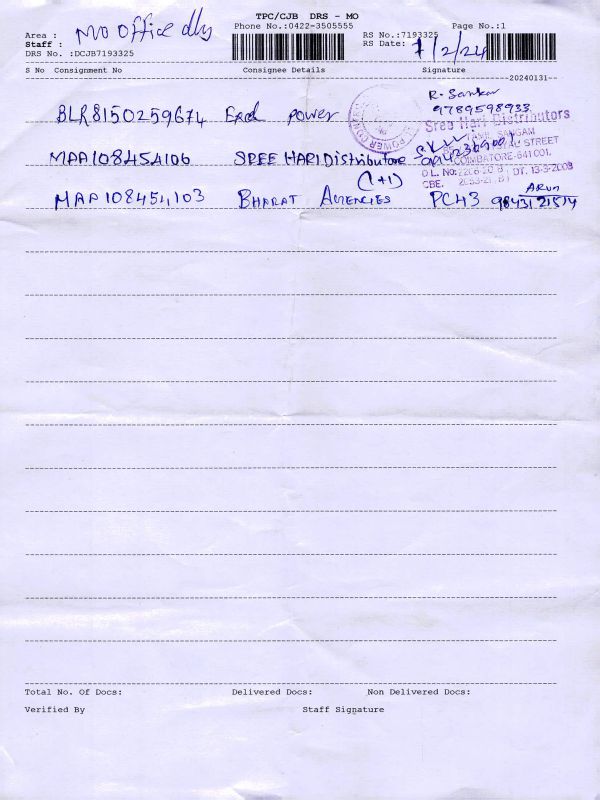 TPC/CJB DRS - MO
Phone No.:0422-3505555
Page No.:1
Area : MO office dly
Staff :
DRS No. :DCJB7193325
RS No.:7193325
RS Date: 1/2/24
S No Consignment No Consignee Details Signature
20240131
R. Sankar
9789598933
BLR8150259674 Exd power
Sree Hari Distributors
SANGAM
STREET
MAA108454106 SREE HARI Distributors
COIMBATORE-641 001.
(1+1)
DT. 13-5-2003
CBE.
Arun
MAA108454103 BHARAT AGENCIES PC43 9843121574
Total No. Of Docs: Delivered Docs: Non Delivered Docs:
Verified By Staff Signature